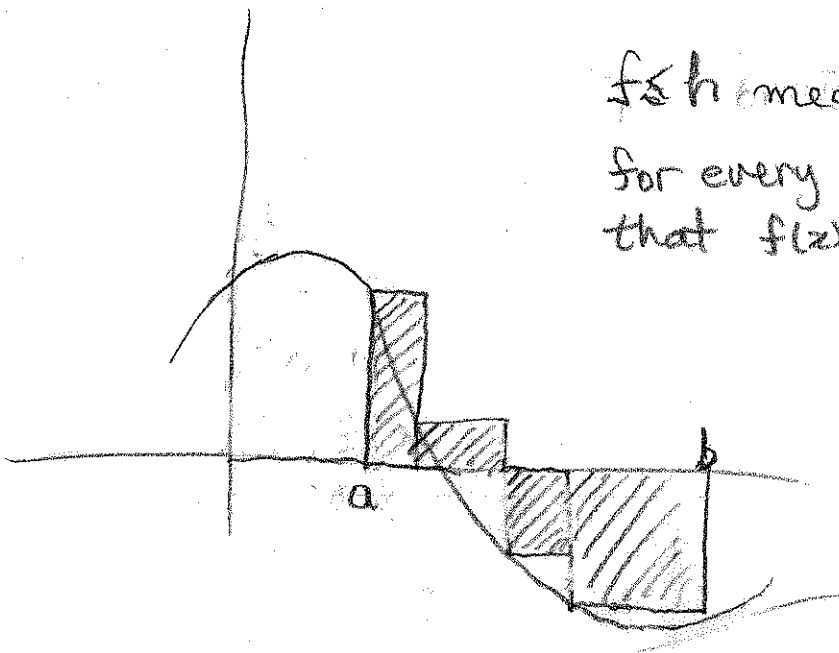 f ≤ h mea
for every
that f(x)
a
b